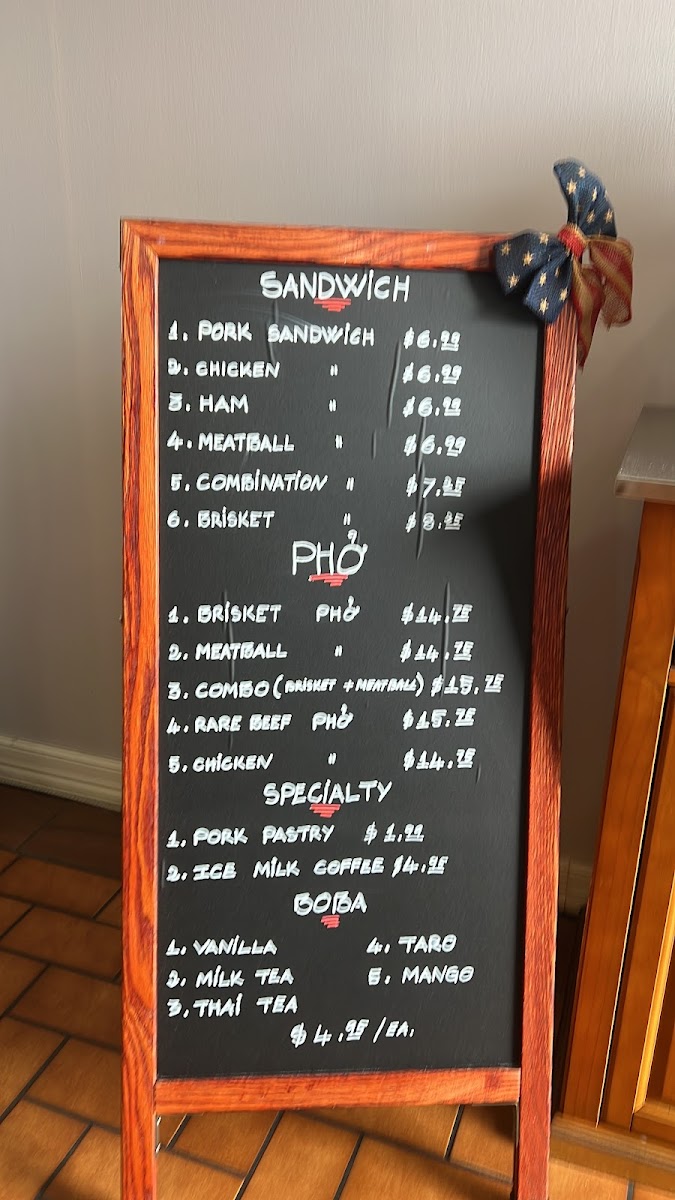 SANDWICH
1. PORK SANDWICH $6.99
2. CHICKEN " $6.99
3. HAM " $6.99
4. MEATBALL " $6.99
5. COMBINATION "
6. BRISKET "
PHỞ
1. BRISKET PHỞ $14.75
2. MEATBALL " $14.75
3. COMBO (BRISKET + MEATBALL) $15.75
4. RARE BEEF PHỞ $15.75
5. CHICKEN " $14.75
SPECIALTY
1. PORK PASTRY $1.99
2. ICE MILK COFFEE $4.95
BOBA
1. VANILLA 4. TARO
2. MILK TEA 5. MANGO
3. THAI TEA
$4.95/EA.